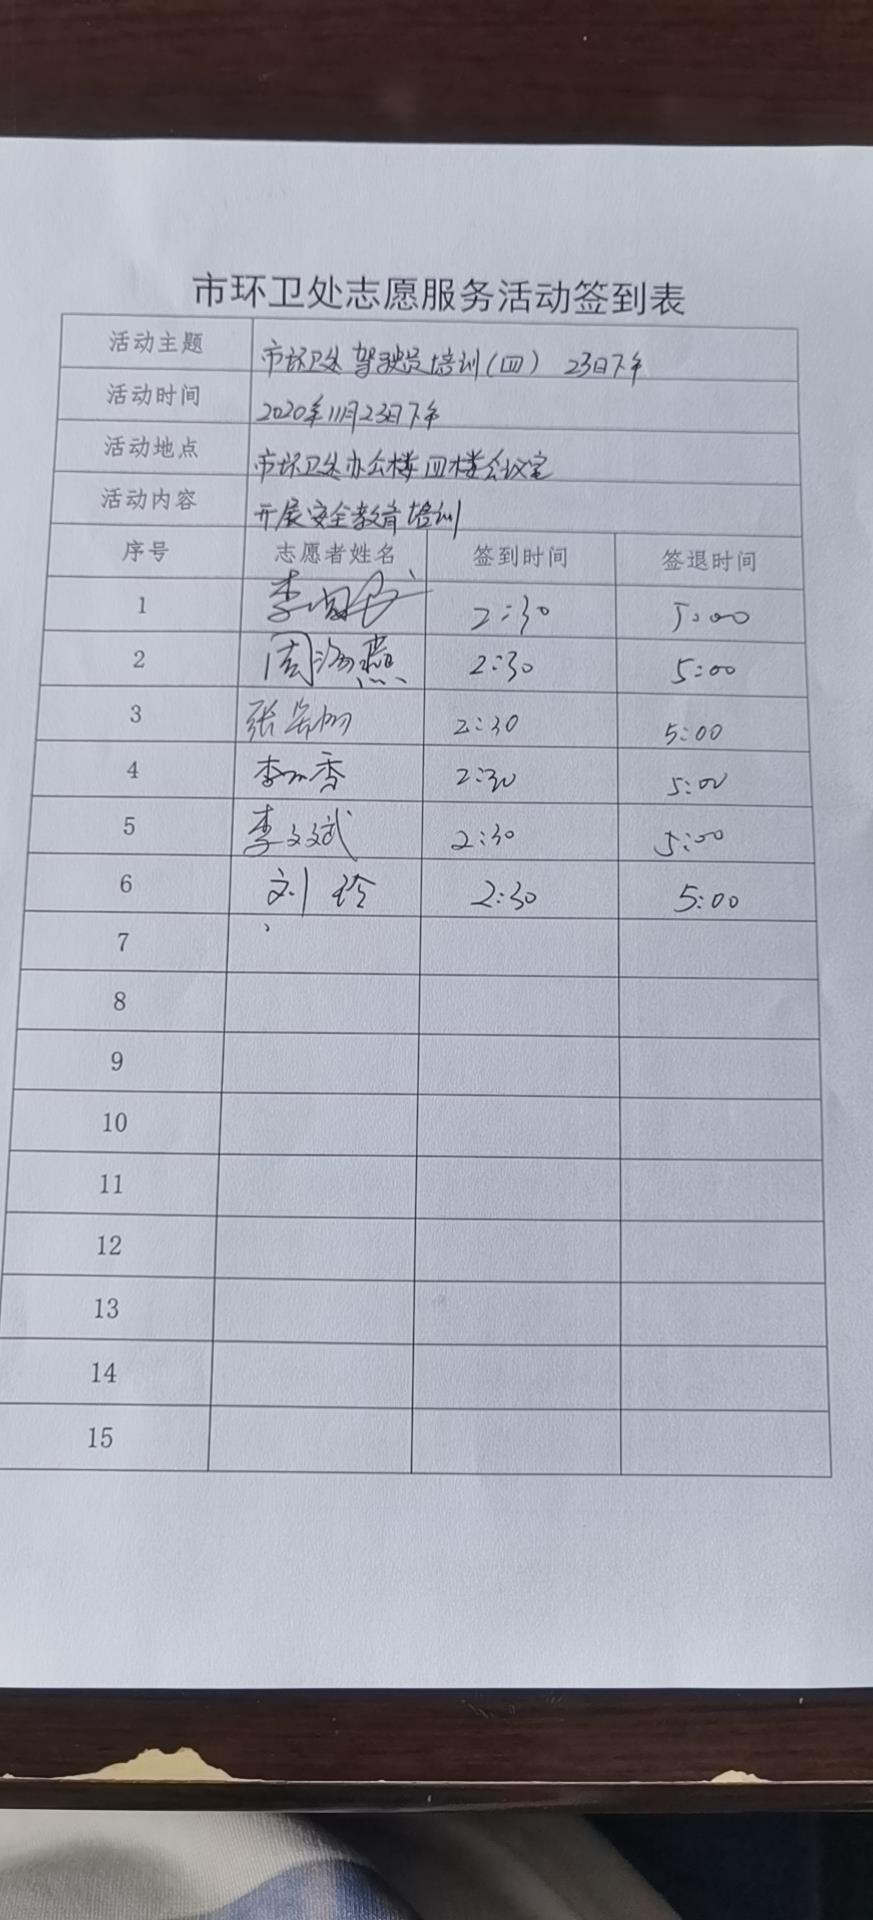 市环卫处志愿服务活动签到表
活动主题 市环卫处驾驶员培训(四) 23日下午
活动时间 2020年11月23日下午
活动地点 市环卫处办公楼四楼会议室
活动内容 开展安全教育培训
序号 志愿者姓名 签到时间 签退时间
1 李 2:30 5:00
2 周海燕 2:30 5:00
3 张 2:30 5:00
4 李 香 2:30 5:00
5 李文斌 2:30 5:00
6 刘玲 2:30 5:00
7
8
9
10
11
12
13
14
15